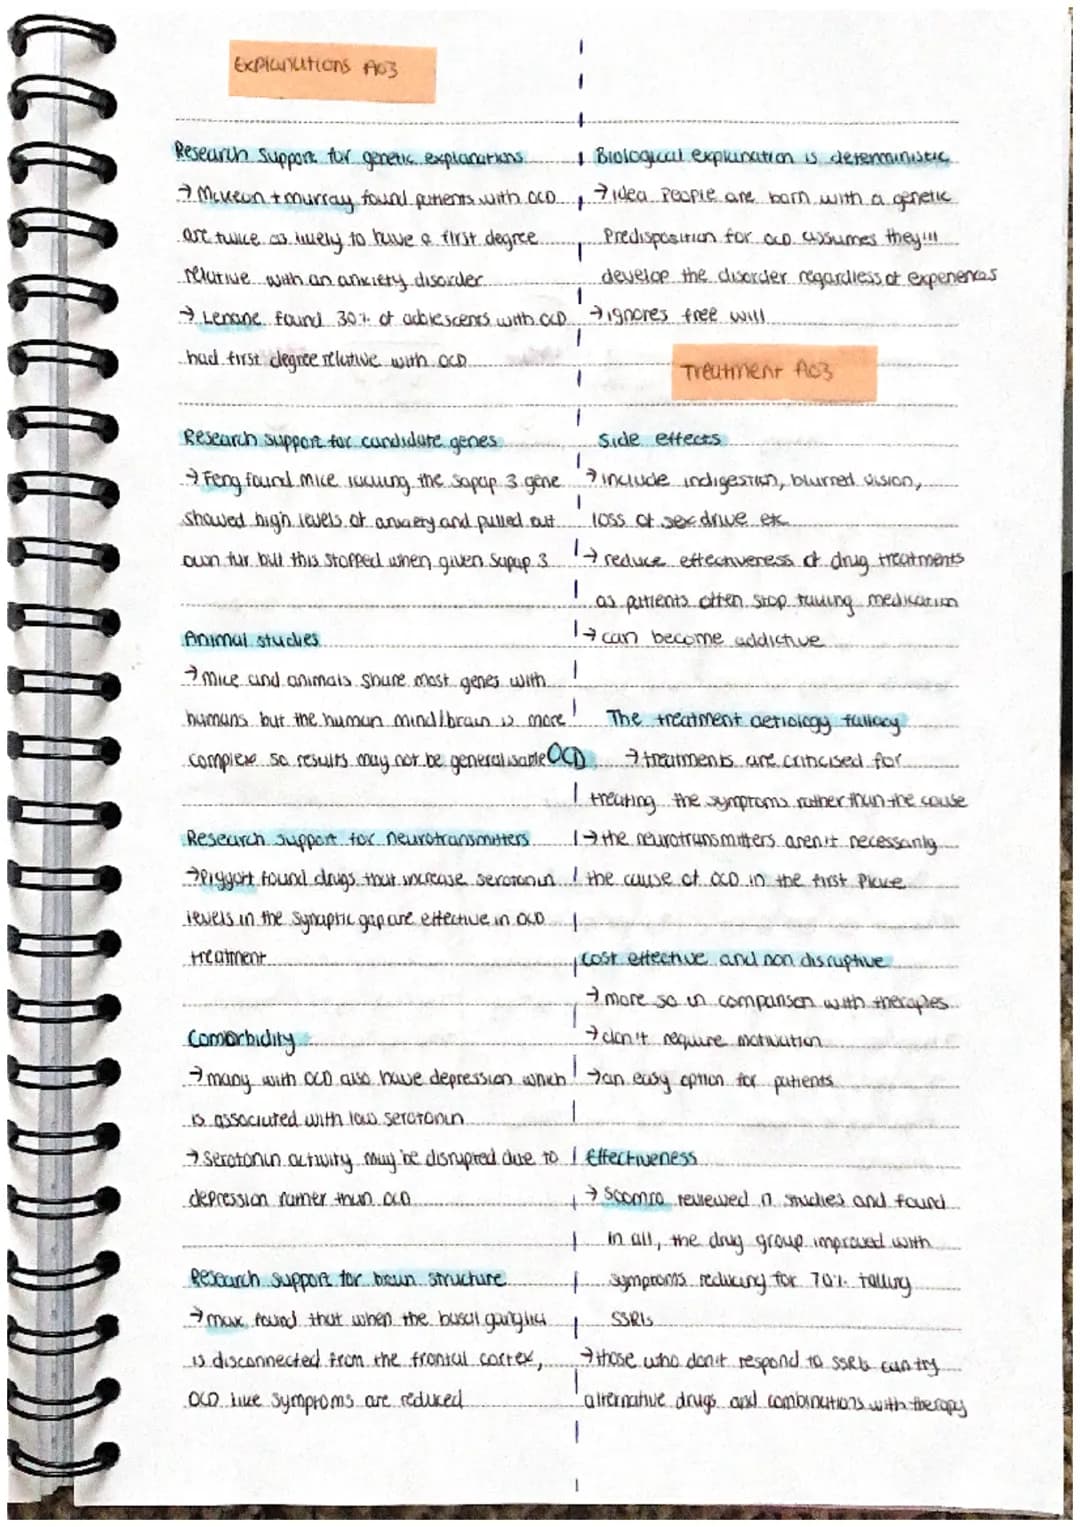 Explanations AO3
Research support for genetic explanations
→ Mckeon + murray found patients with OCD
are twice as likely to have a first degree
relative with an anxiety disorder
→ Lenane found 30% of adolescents with OCD
had first degree relative with OCD
Research support for candidate genes
→ Feng found mice lacking the Sapap 3 gene
showed high levels of anxiety and pulled out
own fur but this stopped when given Sapap 3
Animal studies
→ Mice and animals share most genes with
humans but the human mind/brain is more
complex so results may not be generalisable
Research support for neurotransmitters
→ Piggort found drugs that increase serotonin
levels in the synaptic gap are effective in OCD
treatment
Comorbidity
→ many with OCD also have depression which
is associated with low serotonin
→ Serotonin activity may be disrupted due to
depression rather than OCD
Research support for brain structure
→ max found that when the basal ganglia
is disconnected from the frontal cortex,
OCD like symptoms are reduced
OCD
Biological explanation is deterministic
→ idea people are born with a genetic
Predisposition for OCD assumes they'll
develop the disorder regardless of experiences
→ ignores free will
Treatment AO3
Side effects
→ include indigestion, blurred vision,
loss of sex drive etc
→ reduce effectiveness of drug treatments
as patients often stop taking medication
→ can become addictive
The treatment aetiology fallacy
→ treatments are criticised for
treating the symptoms rather than the cause
→ the neurotransmitters aren't necessarily
the cause of OCD in the first place
Cost effective and non disruptive
→ more so in comparison with therapies
→ don't require motivation
→ an easy option for patients
Effectiveness
→ Soomro reviewed 17 studies and found
in all, the drug group improved with
symptoms reducing for 70% talling
SSRIs
→ those who don't respond to SSRIs can try
alternative drugs and combinations with therapy